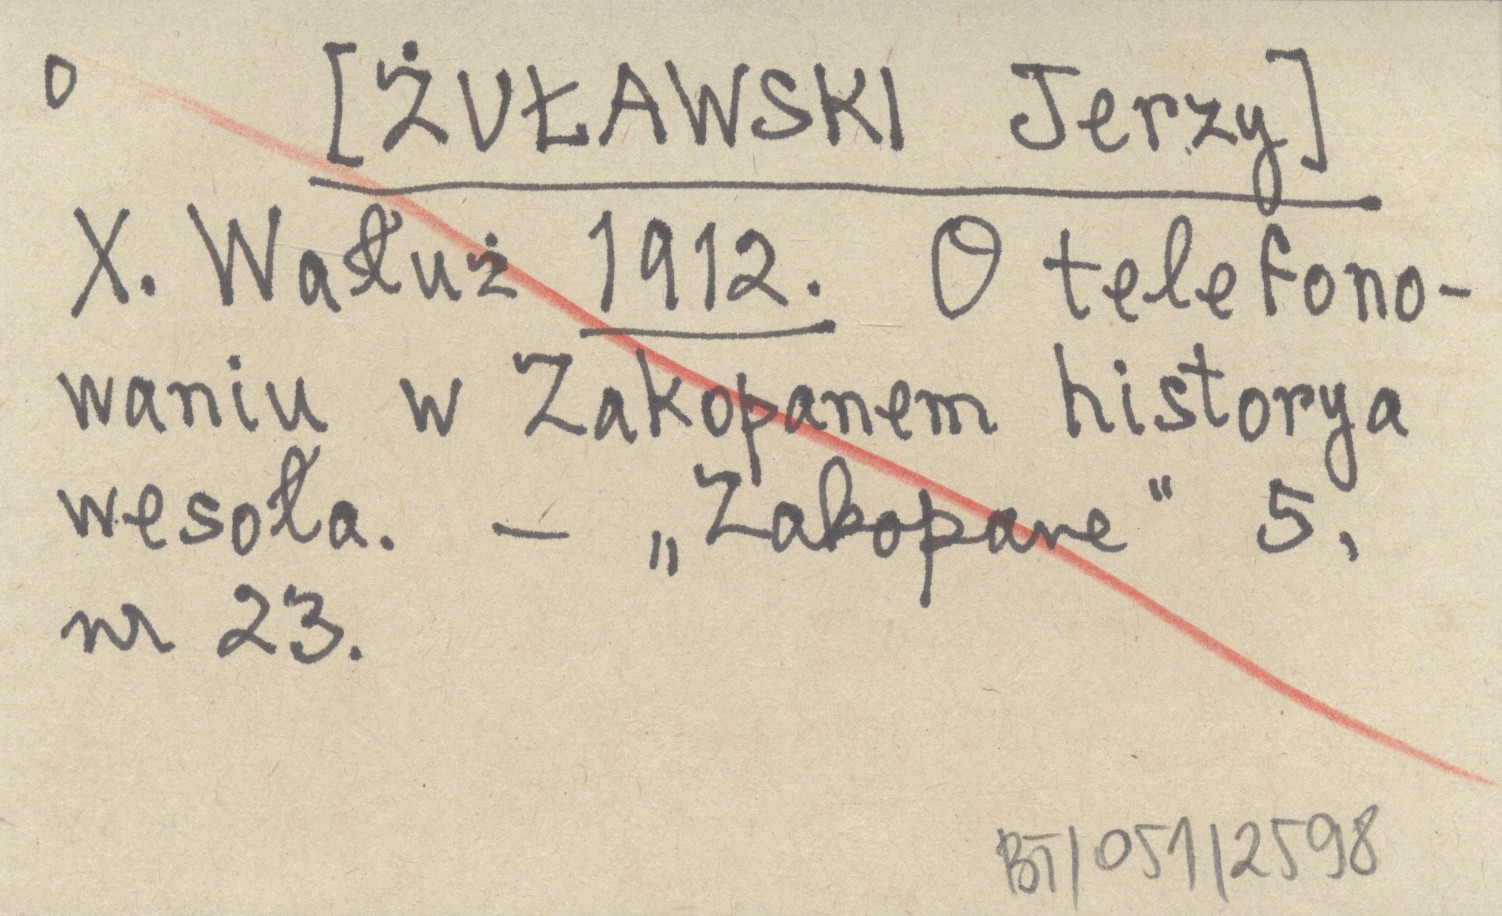 o [ŻUŁAWSKI Jerzy]
X. Wałuż 1912. O telefono-
waniu w Zakopanem historya
wesoła. — „Zakopane" 5,
nr 23.
BT/051/2598